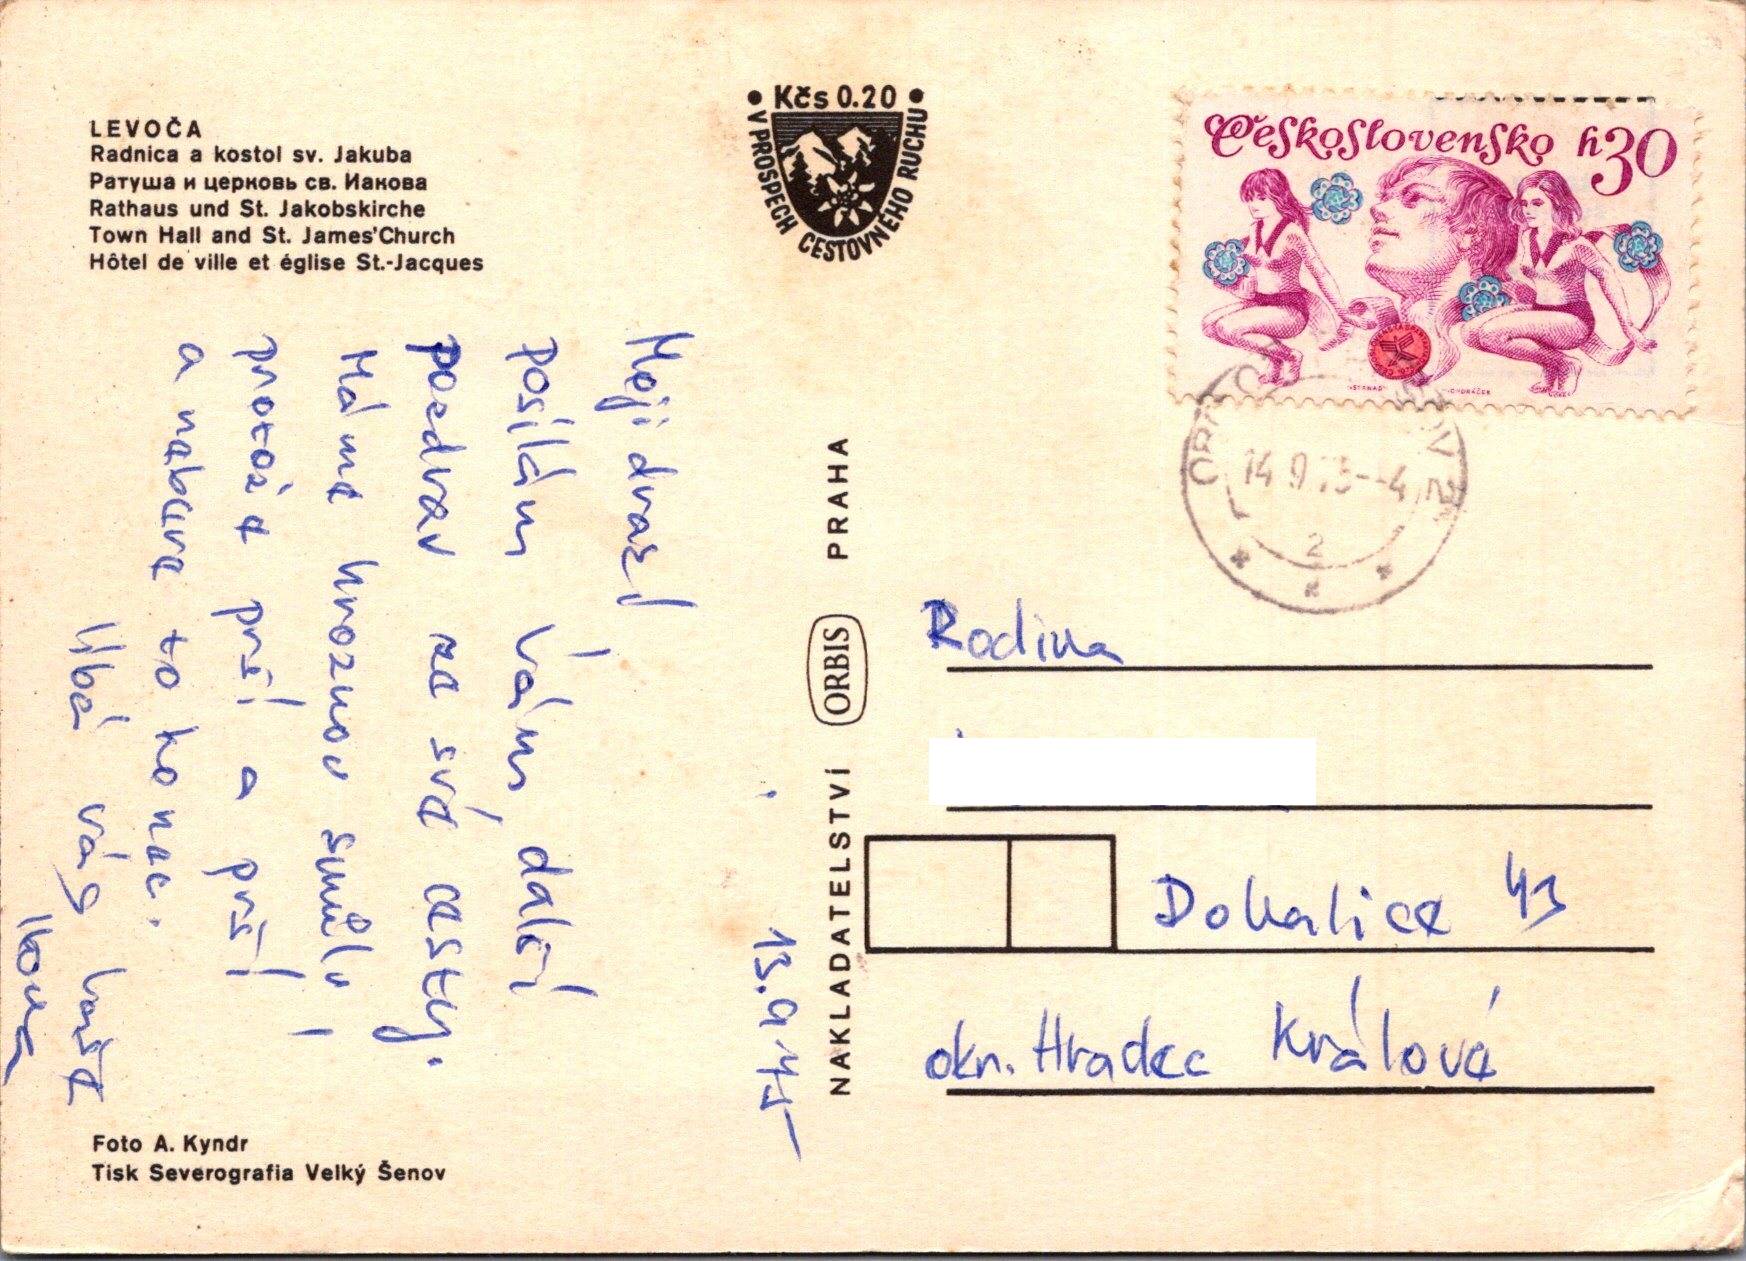 LEVOČA
Radnica a kostol sv. Jakuba
Ратуша и церковь св. Иакова
Rathaus und St. Jakobskirche
Town Hall and St. James'Church
Hôtel de ville et église St.-Jacques
• Kčs 0.20 •
V PROSPECH CESTOVNÉHO RUCHU
Československo h30
14.9.75--4
2
13.9.75
Moji drazí
posílám Vám další
pozdrav ze své cesty.
Máme hroznou smůlu
protože prší a prší
a nebere to konec.
líbá vás Vaše
NAKLADATELSTVÍ ORBIS PRAHA
Rodina
Dohalice 43
okr. Hradec Králové
Foto A. Kyndr
Tisk Severografia Velký Šenov